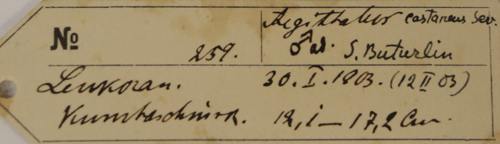 Aegithalus castaneus Sev.
№ 259. ♂ ad. S. Buturlin
Lenkoran. 30. I. 1903. (12 II 03)
Kumbaschinsk. 12,1 — 17,2 Cm.